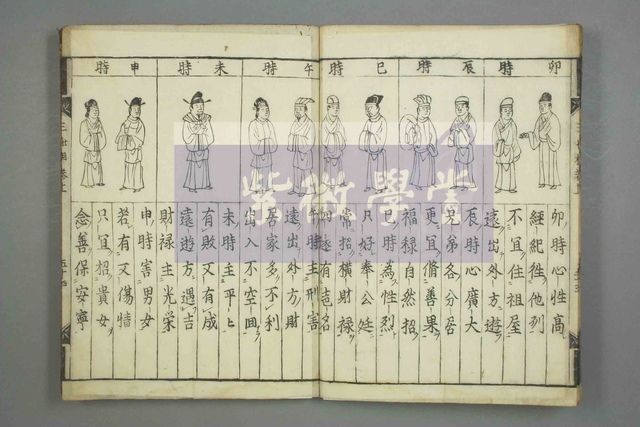 卯時
辰時
巳時
午時
未時
申時
卯時心性高
經紀往他列
不宜住祖屋
遠出外方遊
辰時心廣大
兄弟各分居
更宜脩善果
福祿自然招
巳時為性烈
只好奉公廷
常招橫財祿
四遂有志名
午時主刑害
遠出外方財
居家多不利
出入不空回
未時主平上
有敗又有成
遠遊方遇吉
財禄主光栄
申時害男女
若有又傷情
只宜招貴女
念善保安寧
紫微學堂
三世相卷上
五十四